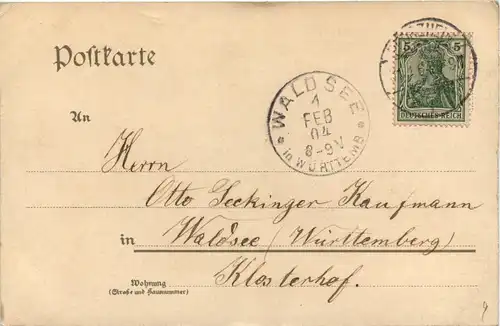 Postkarte
5 5
DEUTSCHES REICH
WALDSEE
1
FEB
04
8-9V
in WÜRTTEMB
An
Herrn
Otto Seckinger Kaufmann
in Waldsee (Württemberg)
Klosterhof.
Wohnung
(Straße und Hausnummer)